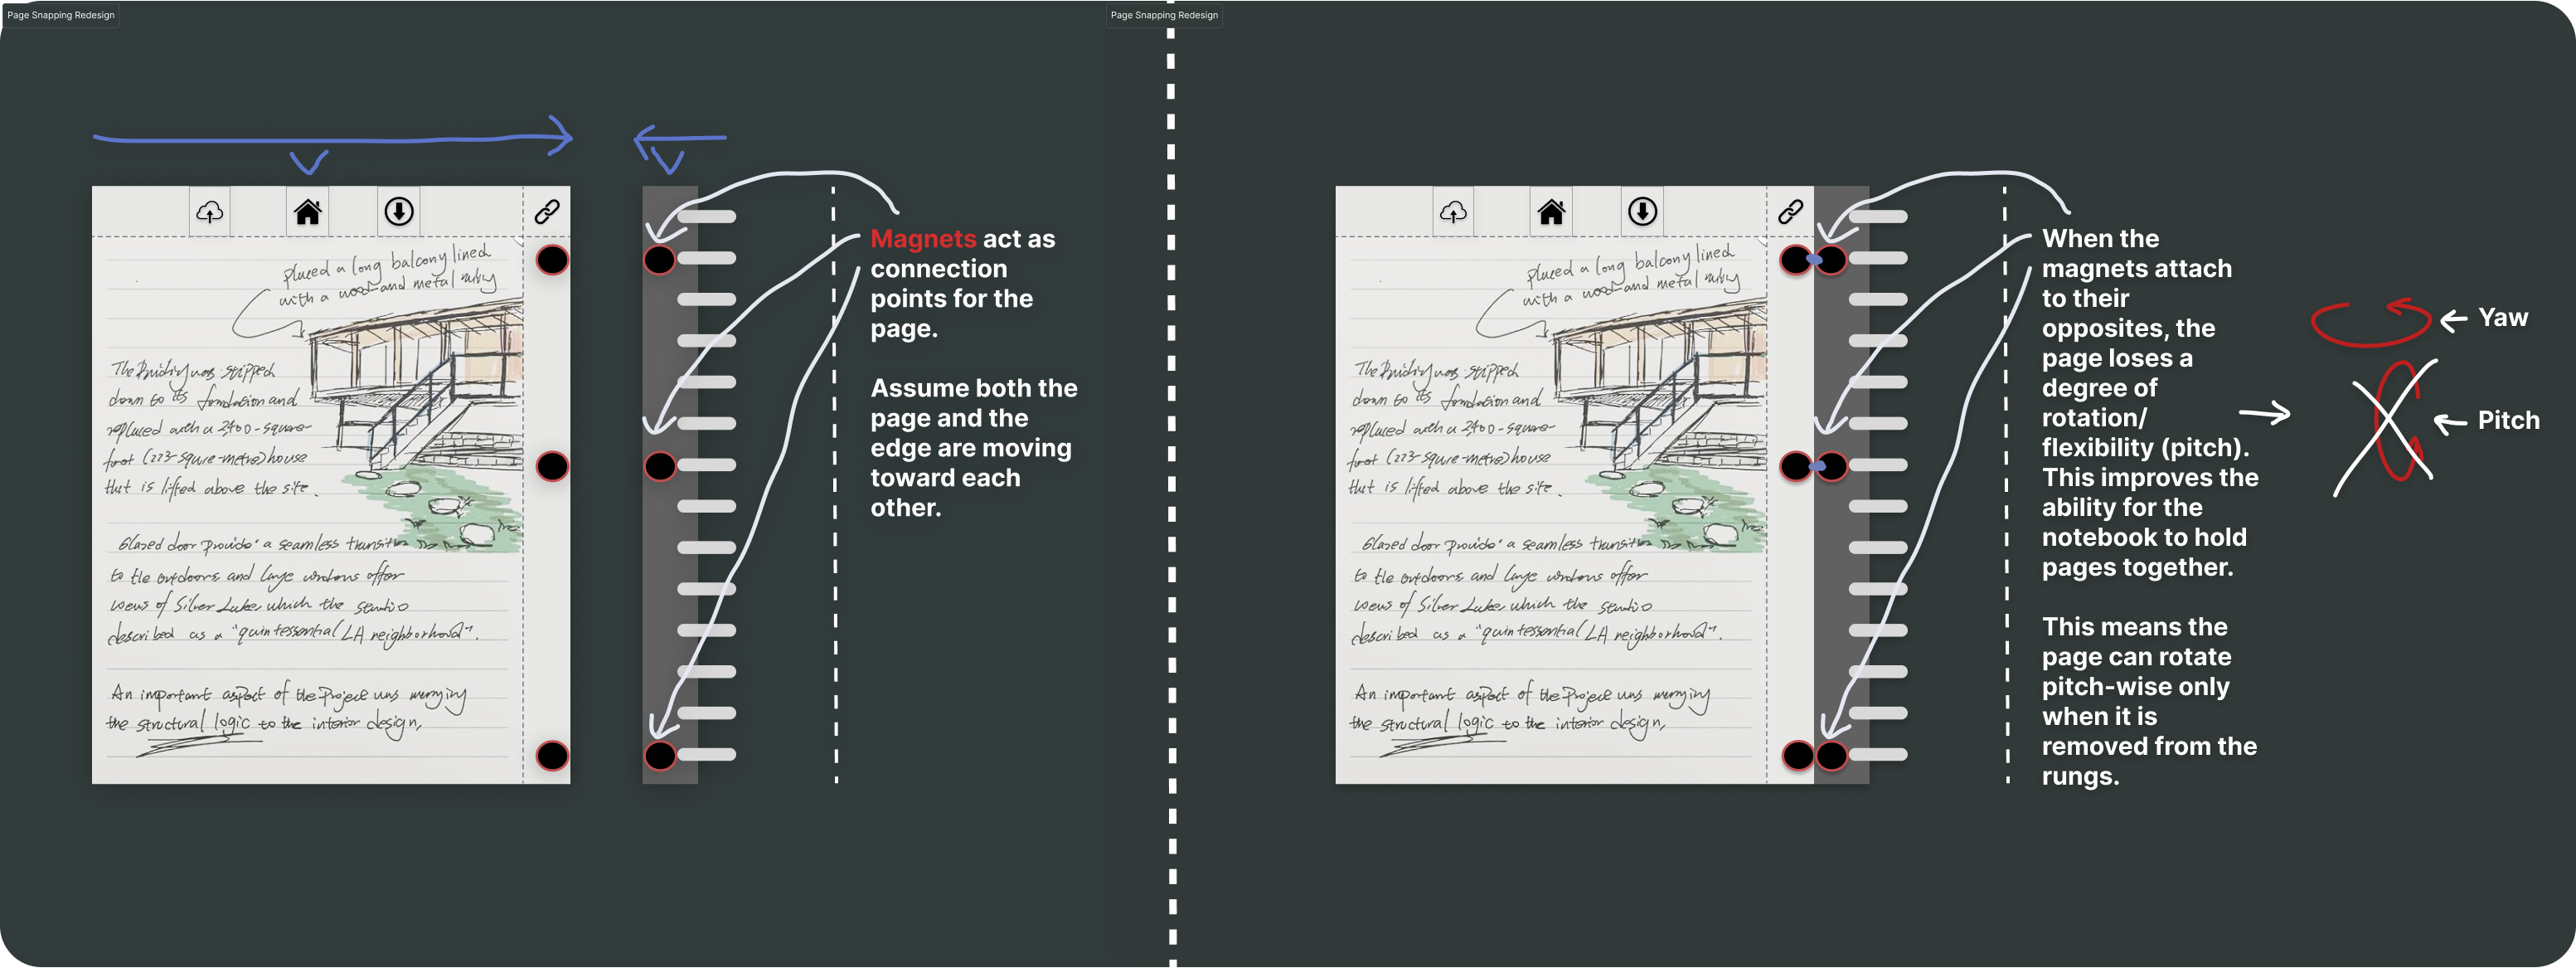 Page Snapping Redesign
placed a long balcony lined
with a wood and metal
The Building was stripped
down to its foundation and
replaced with a 2400-square-
foot (223-squre-metre) house
that is lifted above the site.
Glazed door provide a seamless transition
to the outdoors and large windows offer
views of Silver Lake which the studio
described as a "quintessential LA neighborhood".
An important aspect of the Project was marrying
the structural logic to the interior design,
Magnets act as
connection
points for the
page.
Assume both the
page and the
edge are moving
toward each
other.
Page Snapping Redesign
placed a long balcony lined
with a wood and metal
The Building was stripped
down to its foundation and
replaced with a 2400-square-
foot (223-squre-metre) house
that is lifted above the site.
Glazed door provide a seamless transition
to the outdoors and large windows offer
views of Silver Lake which the studio
described as a "quintessential LA neighborhood".
An important aspect of the Project was marrying
the structural logic to the interior design,
When the
magnets attach
to their
opposites, the
page loses a
degree of
rotation/
flexibility (pitch).
This improves the
ability for the
notebook to hold
pages together.
This means the
page can rotate
pitch-wise only
when it is
removed from the
rungs.
Yaw
Pitch